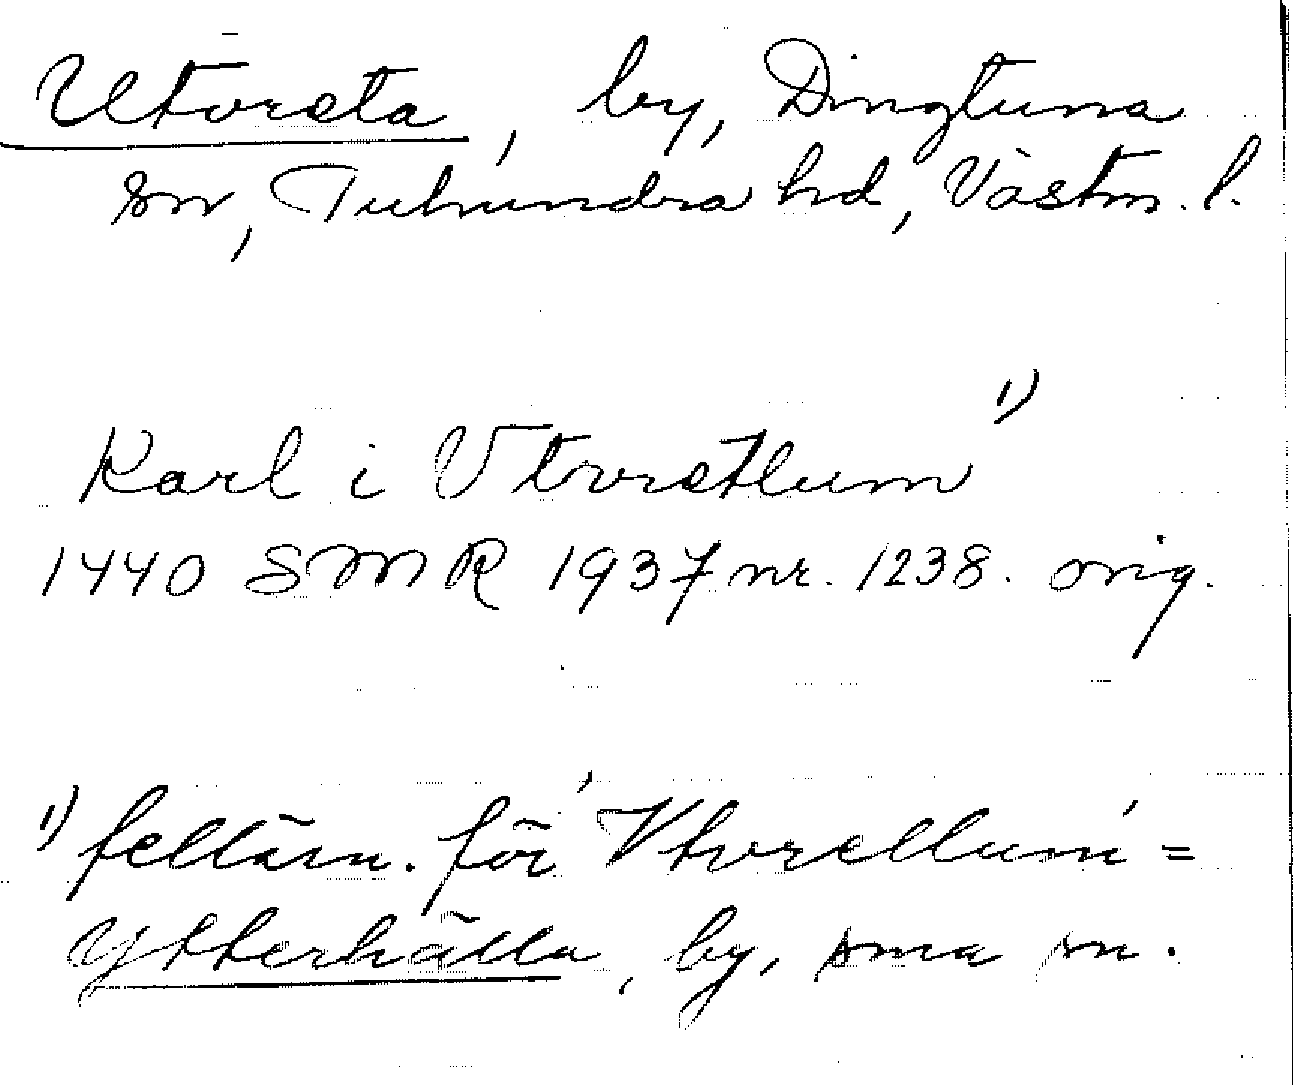 Utorsta, by, Dingtuna
sn, Tuhundra hd, Västm. l.
Karl i Vtvrstlum 1)
1440 SMR 1937 nr. 1238. orig.
1) felläsn. för 'Vtvrellum' =
Ytterhälla, by, sma sn.